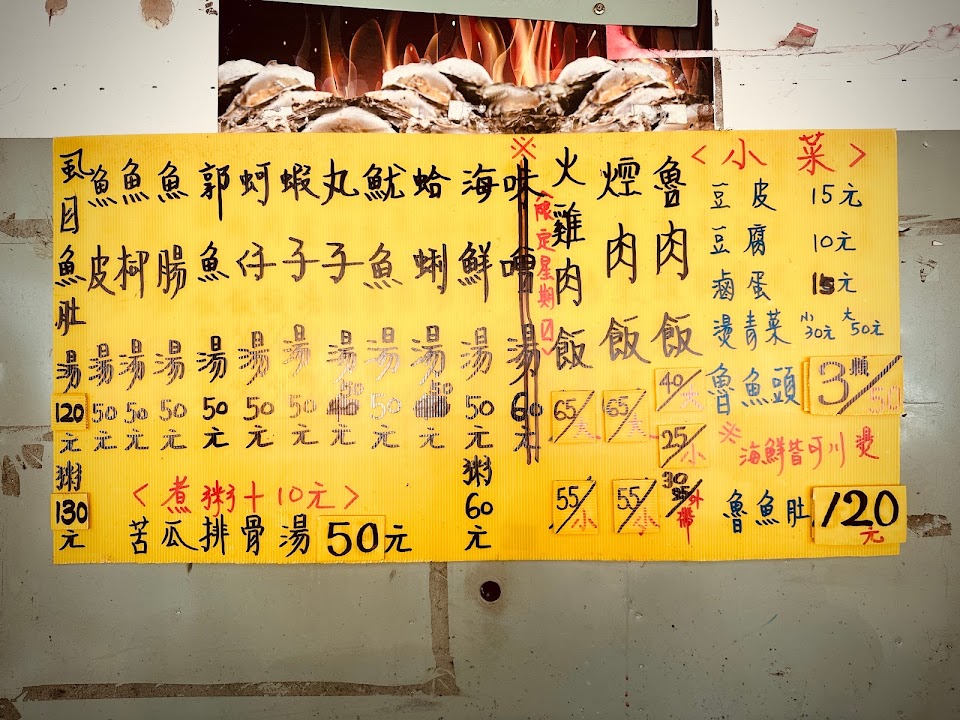 虱目魚肚湯120元粥130元
魚皮湯50元
魚柳湯50元
魚腸湯50元
郭魚湯50元
蚵仔湯50元
蝦子湯50元
丸子湯50元
魷魚湯50元
蛤蜊湯50元
海鮮湯50元粥60元
味噌湯60元
※<限定星期日>
<煮粥+10元>
苦瓜排骨湯50元
火雞肉飯65/大55/小
焢肉飯65/大55/小
魯肉飯40/大25/小30外帶
<小菜>
豆皮15元
豆腐10元
滷蛋15元
燙青菜小30元大50元
魯魚頭3顆/50
※海鮮皆可川燙
魯魚肚120元